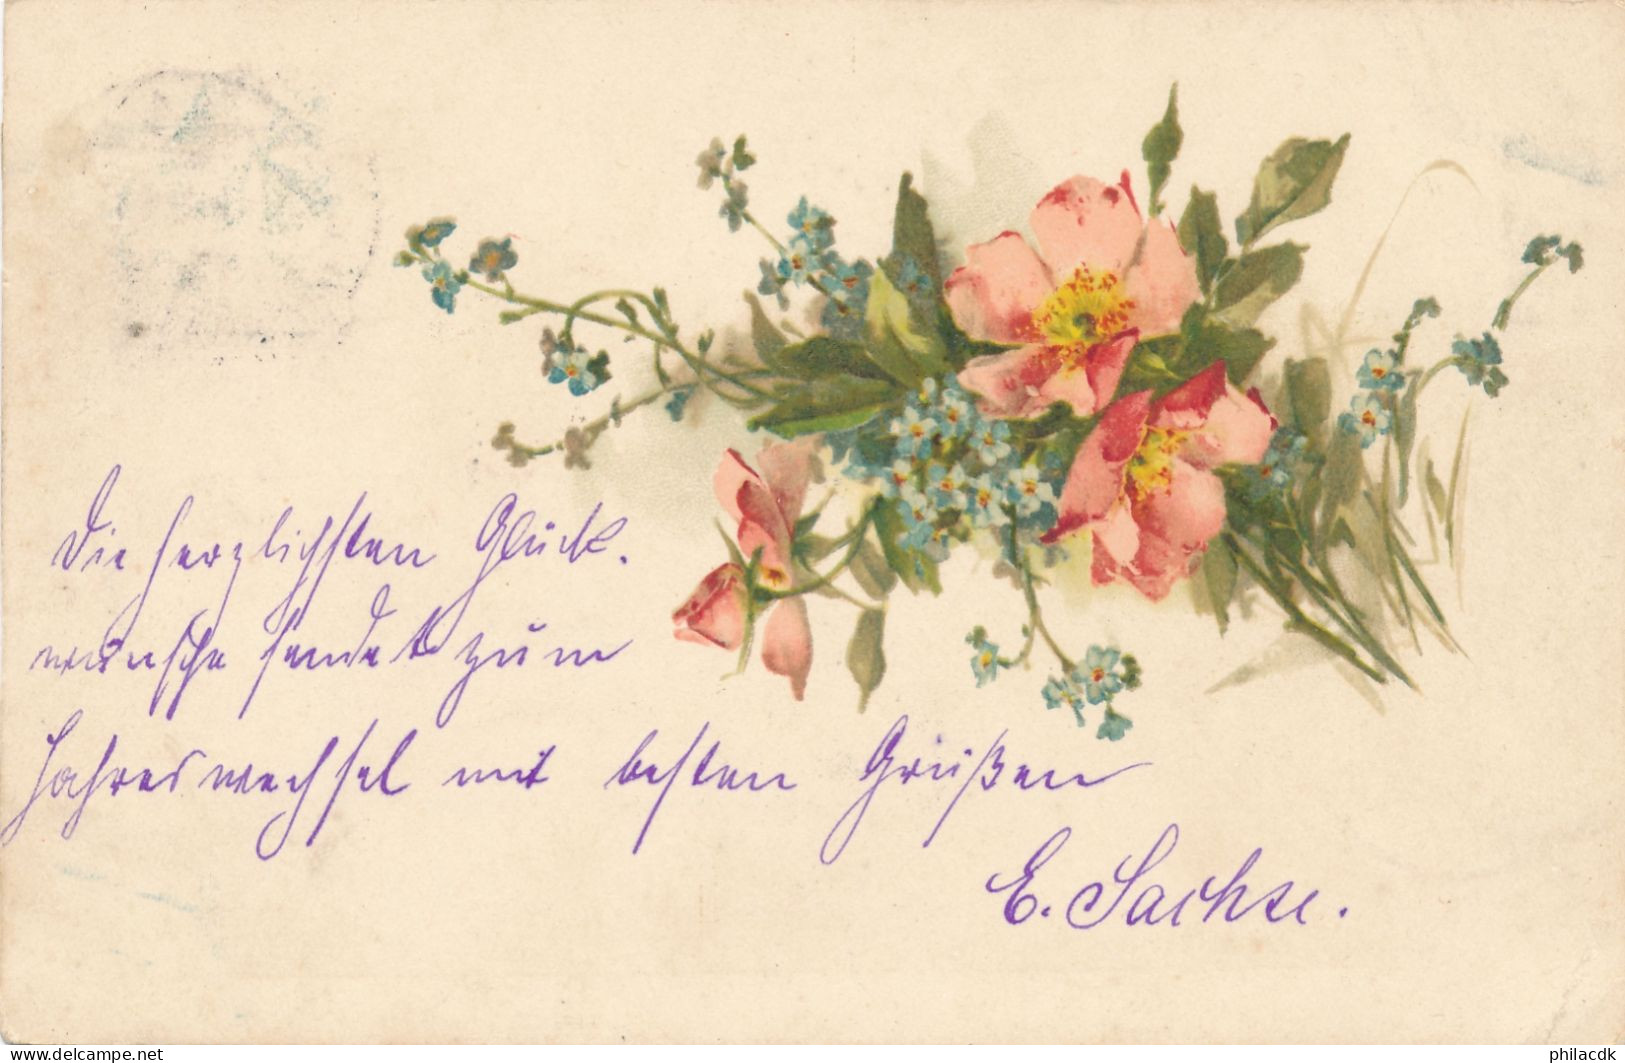 Die herzlichsten Glück.
wünsche sendet zum
Jahreswechsel mit besten Grüßen
E. Sachse.
www.delcampe.net
philacdk